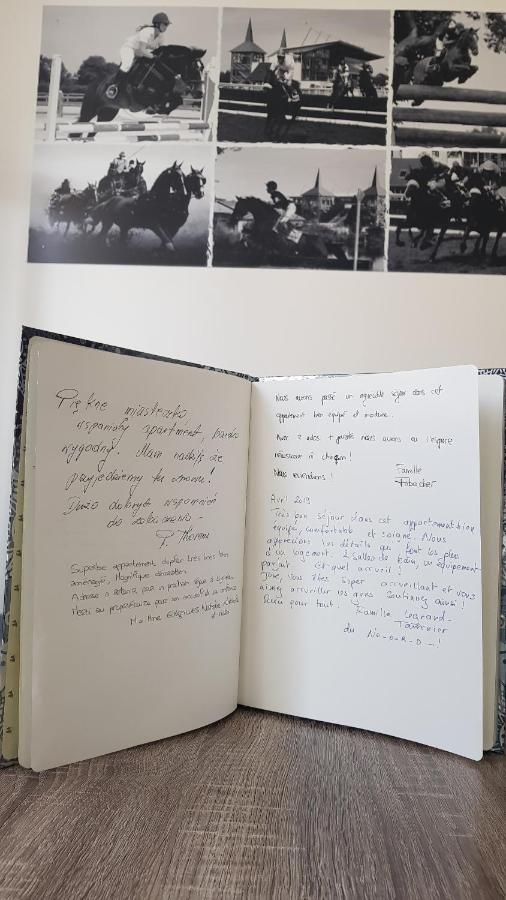 Piękne miasteczko,
wspaniały apartament, bardzo
wygodny. Mam nadzieję, że
przyjedziemy tu znowu!
Dużo dobrych wspomnień
do zobaczenia -
Superbe appartement duplex très très bien
aménagé, Magnifique décoration.
Adresse à retenir pour un prochain séjour à
Merci au propriétaire pour son accueil
Nous avons passé un agréable séjour dans cet
appartement bien équipé et moderne.
Avec 2 ados + nous avons eu l'espace
nécessaire à chacun!
Nous reviendrons!
Famille
Ribacher
Avril 2019
Très bon séjour dans cet appartement bien
équipé, confortable et soigné. Nous
apprécions les détails qui font les plus
d'un logement. 2 salles de bain, un équipement
parfait. Et quel accueil!
vous êtes super accueillant et vous
aimez accueillir les gens. Continuez ainsi!
Merci pour tout. Famille Legrand-
du No-o-R-D-!